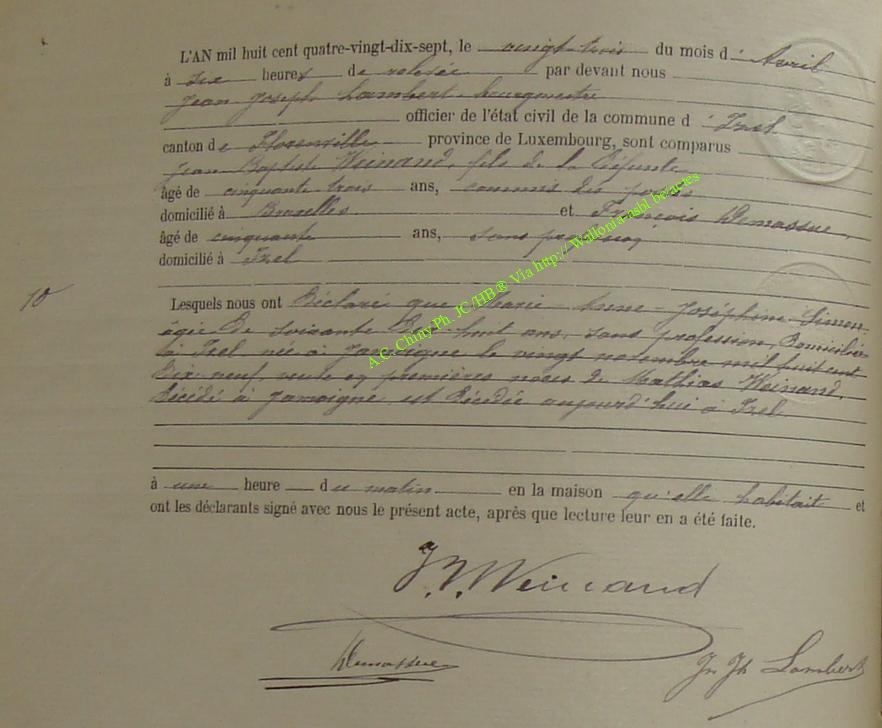 L'AN mil huit cent quatre-vingt-dix-sept, le vingt-trois du mois d' Avril
à six heures de relevée par devant nous
Jean Joseph Lambert bourgmestre
officier de l'état civil de la commune d' Izel
canton de Florenville province de Luxembourg, sont comparus
Jean Baptiste Weinand, fils de la défunte
âgé de cinquante trois ans, commis des postes
domicilié à Bruxelles et François Demassue,
âgé de cinquante ans, sans profession
domicilié à Izel
10
Lesquels nous ont déclaré que Marie Anne Joséphine Simon
âgée de soixante dix huit ans, sans profession, domiciliée
à Izel née à Jamoigne le vingt novembre mil huit cent
dix-neuf veuve en premières noces de Mathias Weinand,
décédé à Jamoigne est décédée aujourd'hui à Izel
à une heure du matin en la maison qu'elle habitait et
ont les déclarants signé avec nous le présent acte, après que lecture leur en a été faite.
J.B. Weinand
Demassue
Jn Jh Lambert
A.C. Chiny Ph. JC/HB ® Via http:// Wallonia-asbl.be/actes